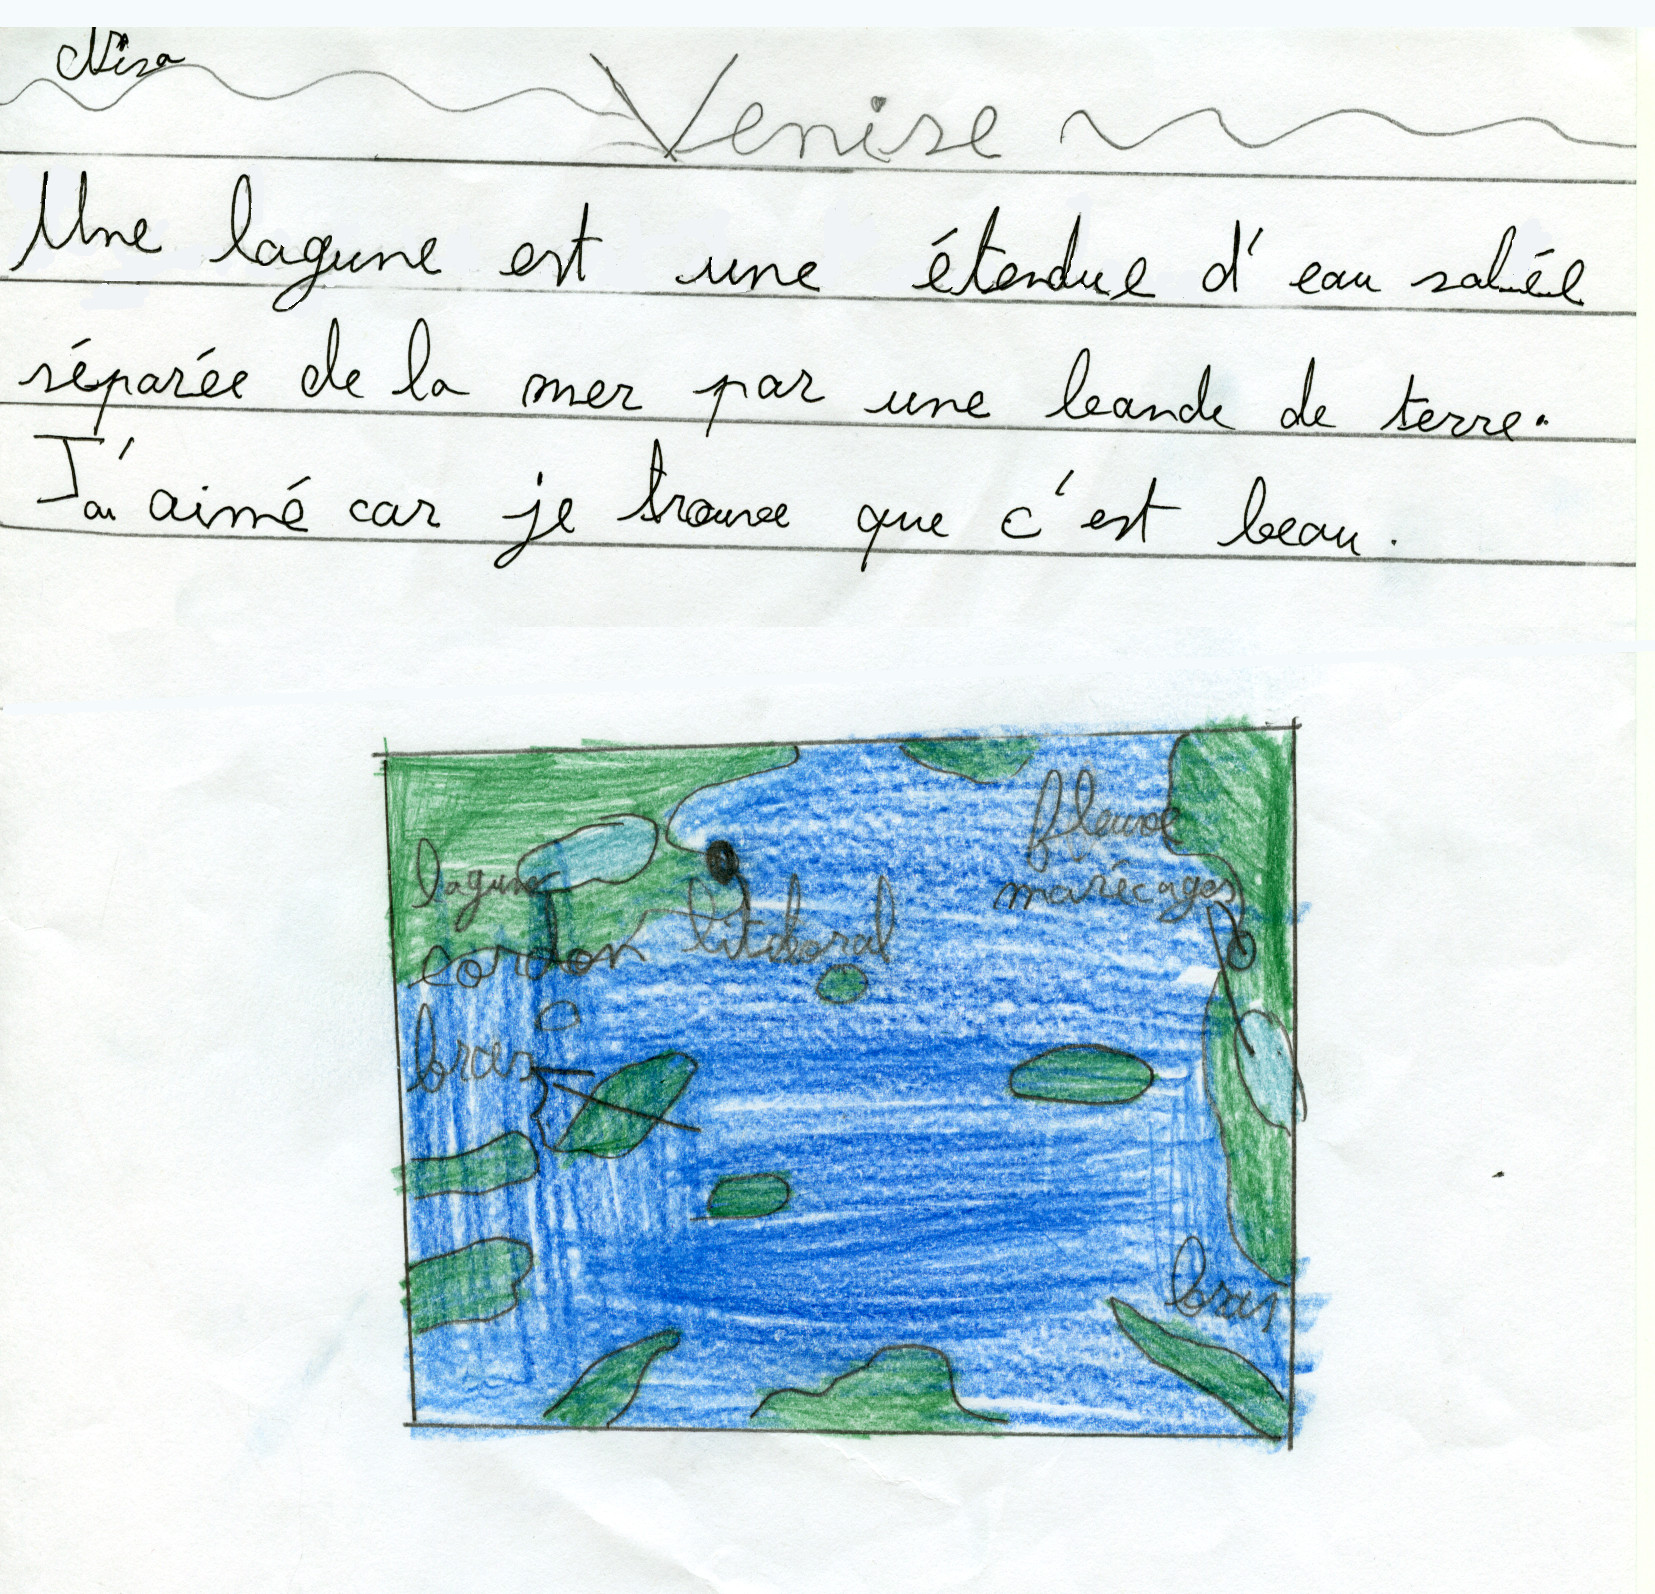 Nisa
Venise
Une lagune est une étendue d'eau salée
séparée de la mer par une bande de terre.
J'ai aimé car je trouve que c'est beau.
fleuve
lagune
marécages
cordon littoral
bras
bras